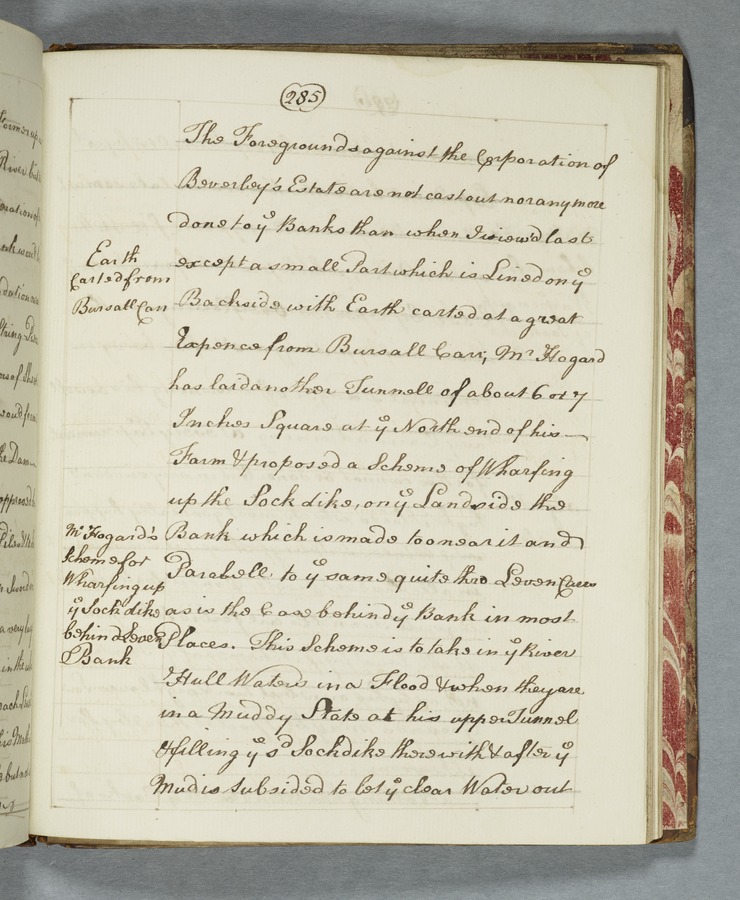 285
The Foregrounds against the Corporation of
Beverley's Estate are not cast out nor any more
done to ye Banks than when I view'd last
except a small Part which is Lined on ye
Backside with Earth carted at a great
Expence from Bursall Carr; Mr Hogard
has laid another Tunnell of about 6 or 7
Inches Square at ye North end of his
Farm & proposed a Scheme of Wharfing
up the Sock dike, on ye Landside the
Bank which is made too near it and
Parabell to ye same quite thro Leven Carrs
as is the Case behind ye Bank in most
Places. This Scheme is to take in ye River
Hull Waters in a Flood & when they are
in a Muddy State at his upper Tunnel
& filling ye sd Sockdike therewith & after ye
Mud is Subsided to let ye clear Water out
Earth
Carted from
Bursall Carr
Mr Hogard's
Scheme for
Wharfing up
ye Sock dike
behind Leven
Bank